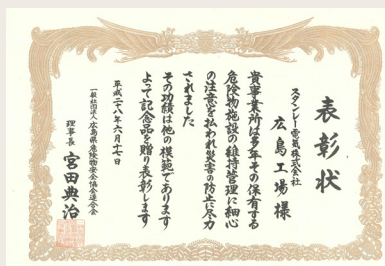 表彰状
スタンレー電気株式会社
広島工場様
貴事業所は多年その保有する
危険物施設の維持管理に細心
の注意を払われ災害の防止に尽力
されました
その功績は他の模範であります
よって記念品を贈り表彰します
平成二八年六月十七日
一般社団法人広島県危険物安全協会連合会
理事長 宮田典治